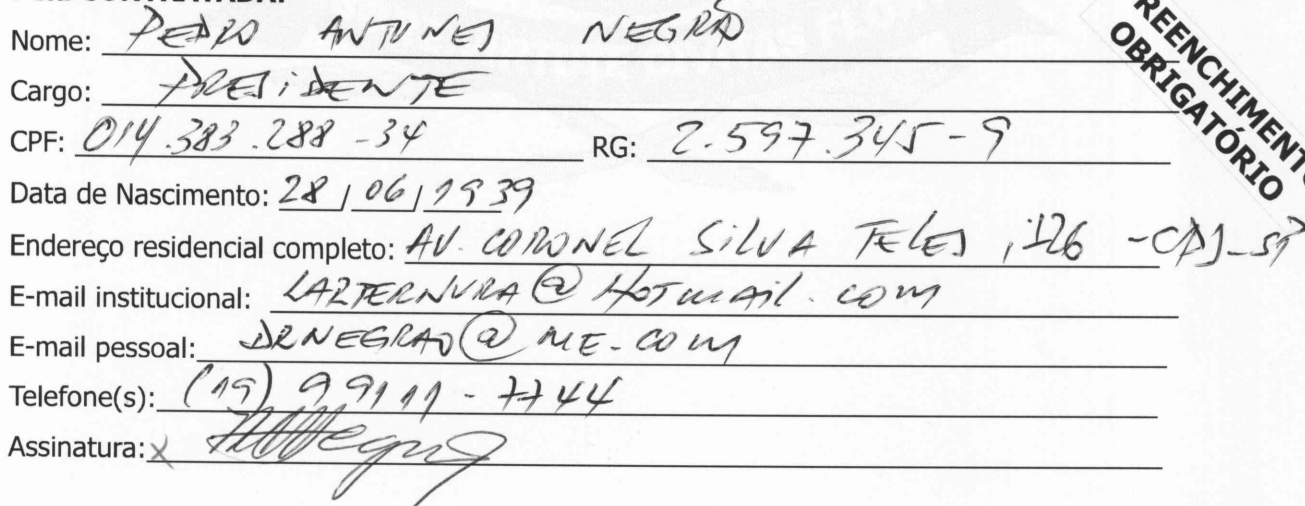 Nome: PEDRO ANTUNES NEGRÃO
Cargo: PRESIDENTE
CPF: 014.383.288-34 RG: 2.597.345-9
Data de Nascimento: 28/06/1939
Endereço residencial completo: AV. CORONEL SILVA TELES, -CPS-SP
E-mail institucional: LARTERNURA@HOTMAIL.COM
E-mail pessoal: DRNEGRAO@ME.COM
Telefone(s): (19) 99111-7744
Assinatura: X
PREENCHIMENTO
OBRIGATÓRIO